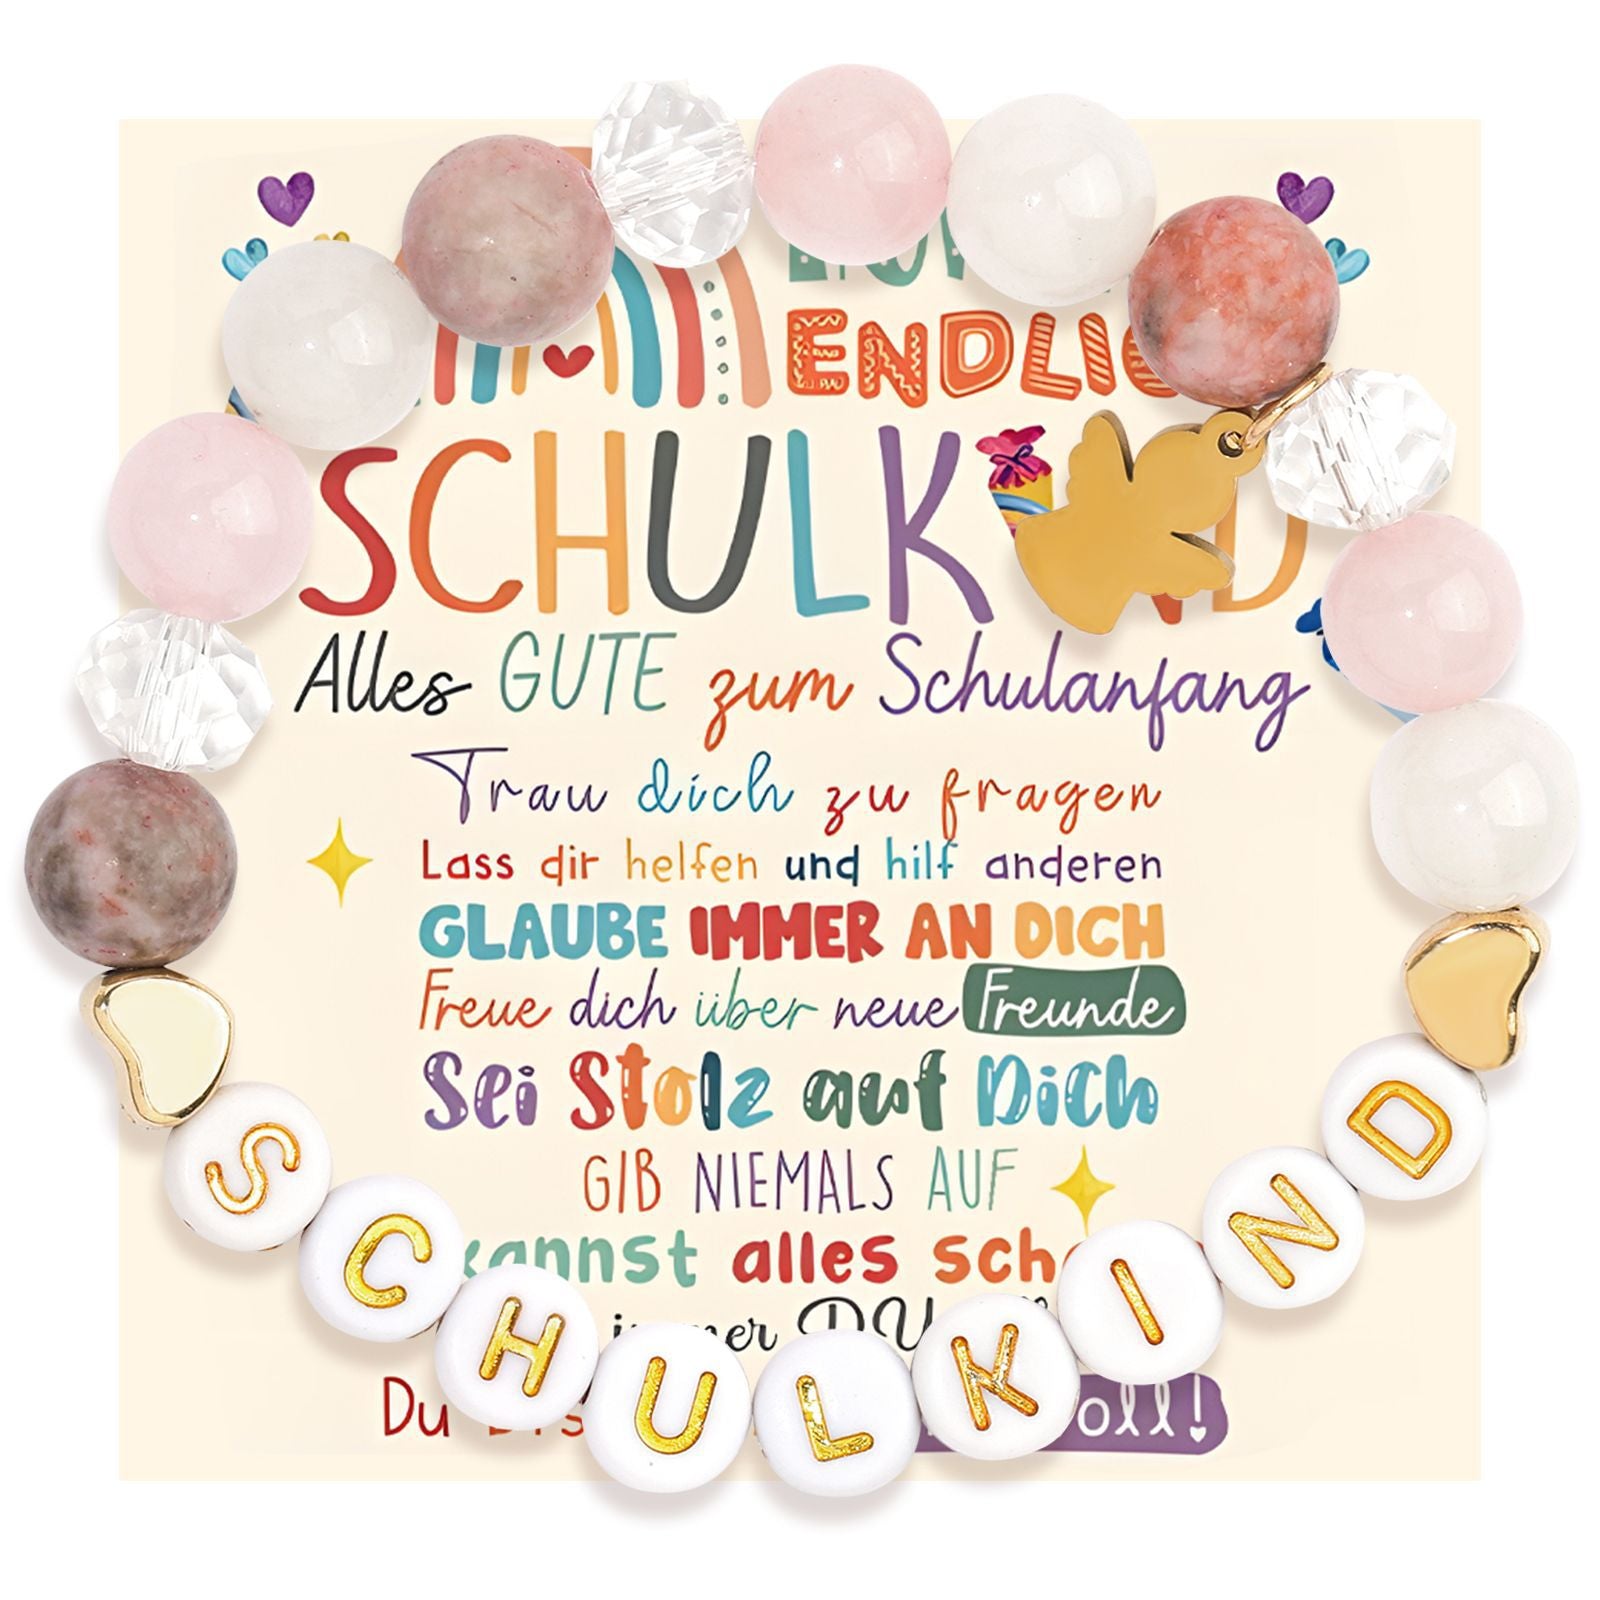 ENDLICH
SCHULKIND
Alles GUTE zum Schulanfang
Trau dich zu fragen
Lass dir helfen und hilf anderen
GLAUBE IMMER AN DICH
Freue dich über neue Freunde
Sei Stolz auf Dich
GIB NIEMALS AUF
kannst alles
immer DU
Du
SCHULKIND